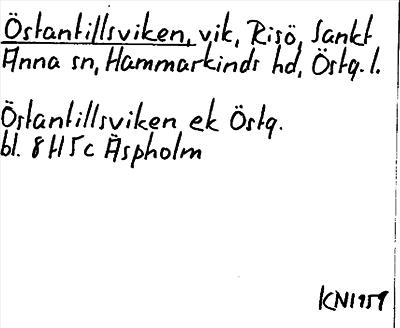 Östantillsviken, vik, Risö, Sankt
Anna sn, Hammarkinds hd, Östg. l.
Östantillsviken ek Östg.
bl. 8H5c Äspholm
KN1959